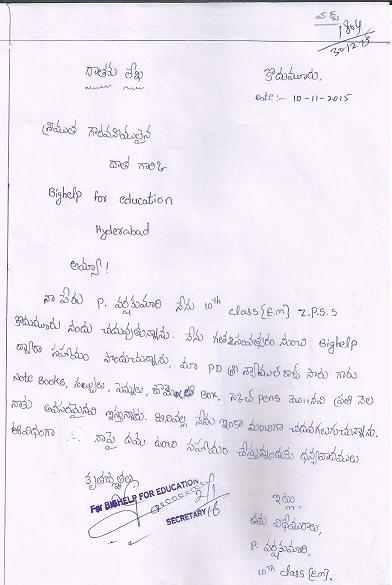 1804
30/12/15
దాతకు లేఖ
కొడుమూరు,
Date:- 10-11-2015
శ్రీయుత గౌరవనీయులైన
దాత గారికి
Bighelp for education
Hyderabad
అయ్యా!
నా పేరు P. వర్షకుమారి నేను 10th class [E.M] Z.P.S.S
కొడుమూరు నందు చదువుతున్నాను. నేను గత 2 సంవత్సరం నుంచి Bighelp
ద్వారా సహాయం పొందుచున్నాను. మా PD శ్రీ సారు గారు
Note Books, సబ్బులు, పెన్నులు, Box, స్కెచ్ Pens మొ॥నవి ప్రతి నెల
నాకు అవసరమైనవి ఇస్తున్నారు. నేను ఇంకా మంచిగా చదవగలుగుచున్నాను.
ఈవిధంగా నాపై దయ ఉంచి సహాయం చేస్తున్నందుకు ధన్యవాదములు
కృతజ్ఞతలు
For BIGHELP FOR EDUCATION
SECRETARY
ఇట్లు,
తమ విధేయురాలు,
P. వర్షకుమారి,
10th class [E.M].